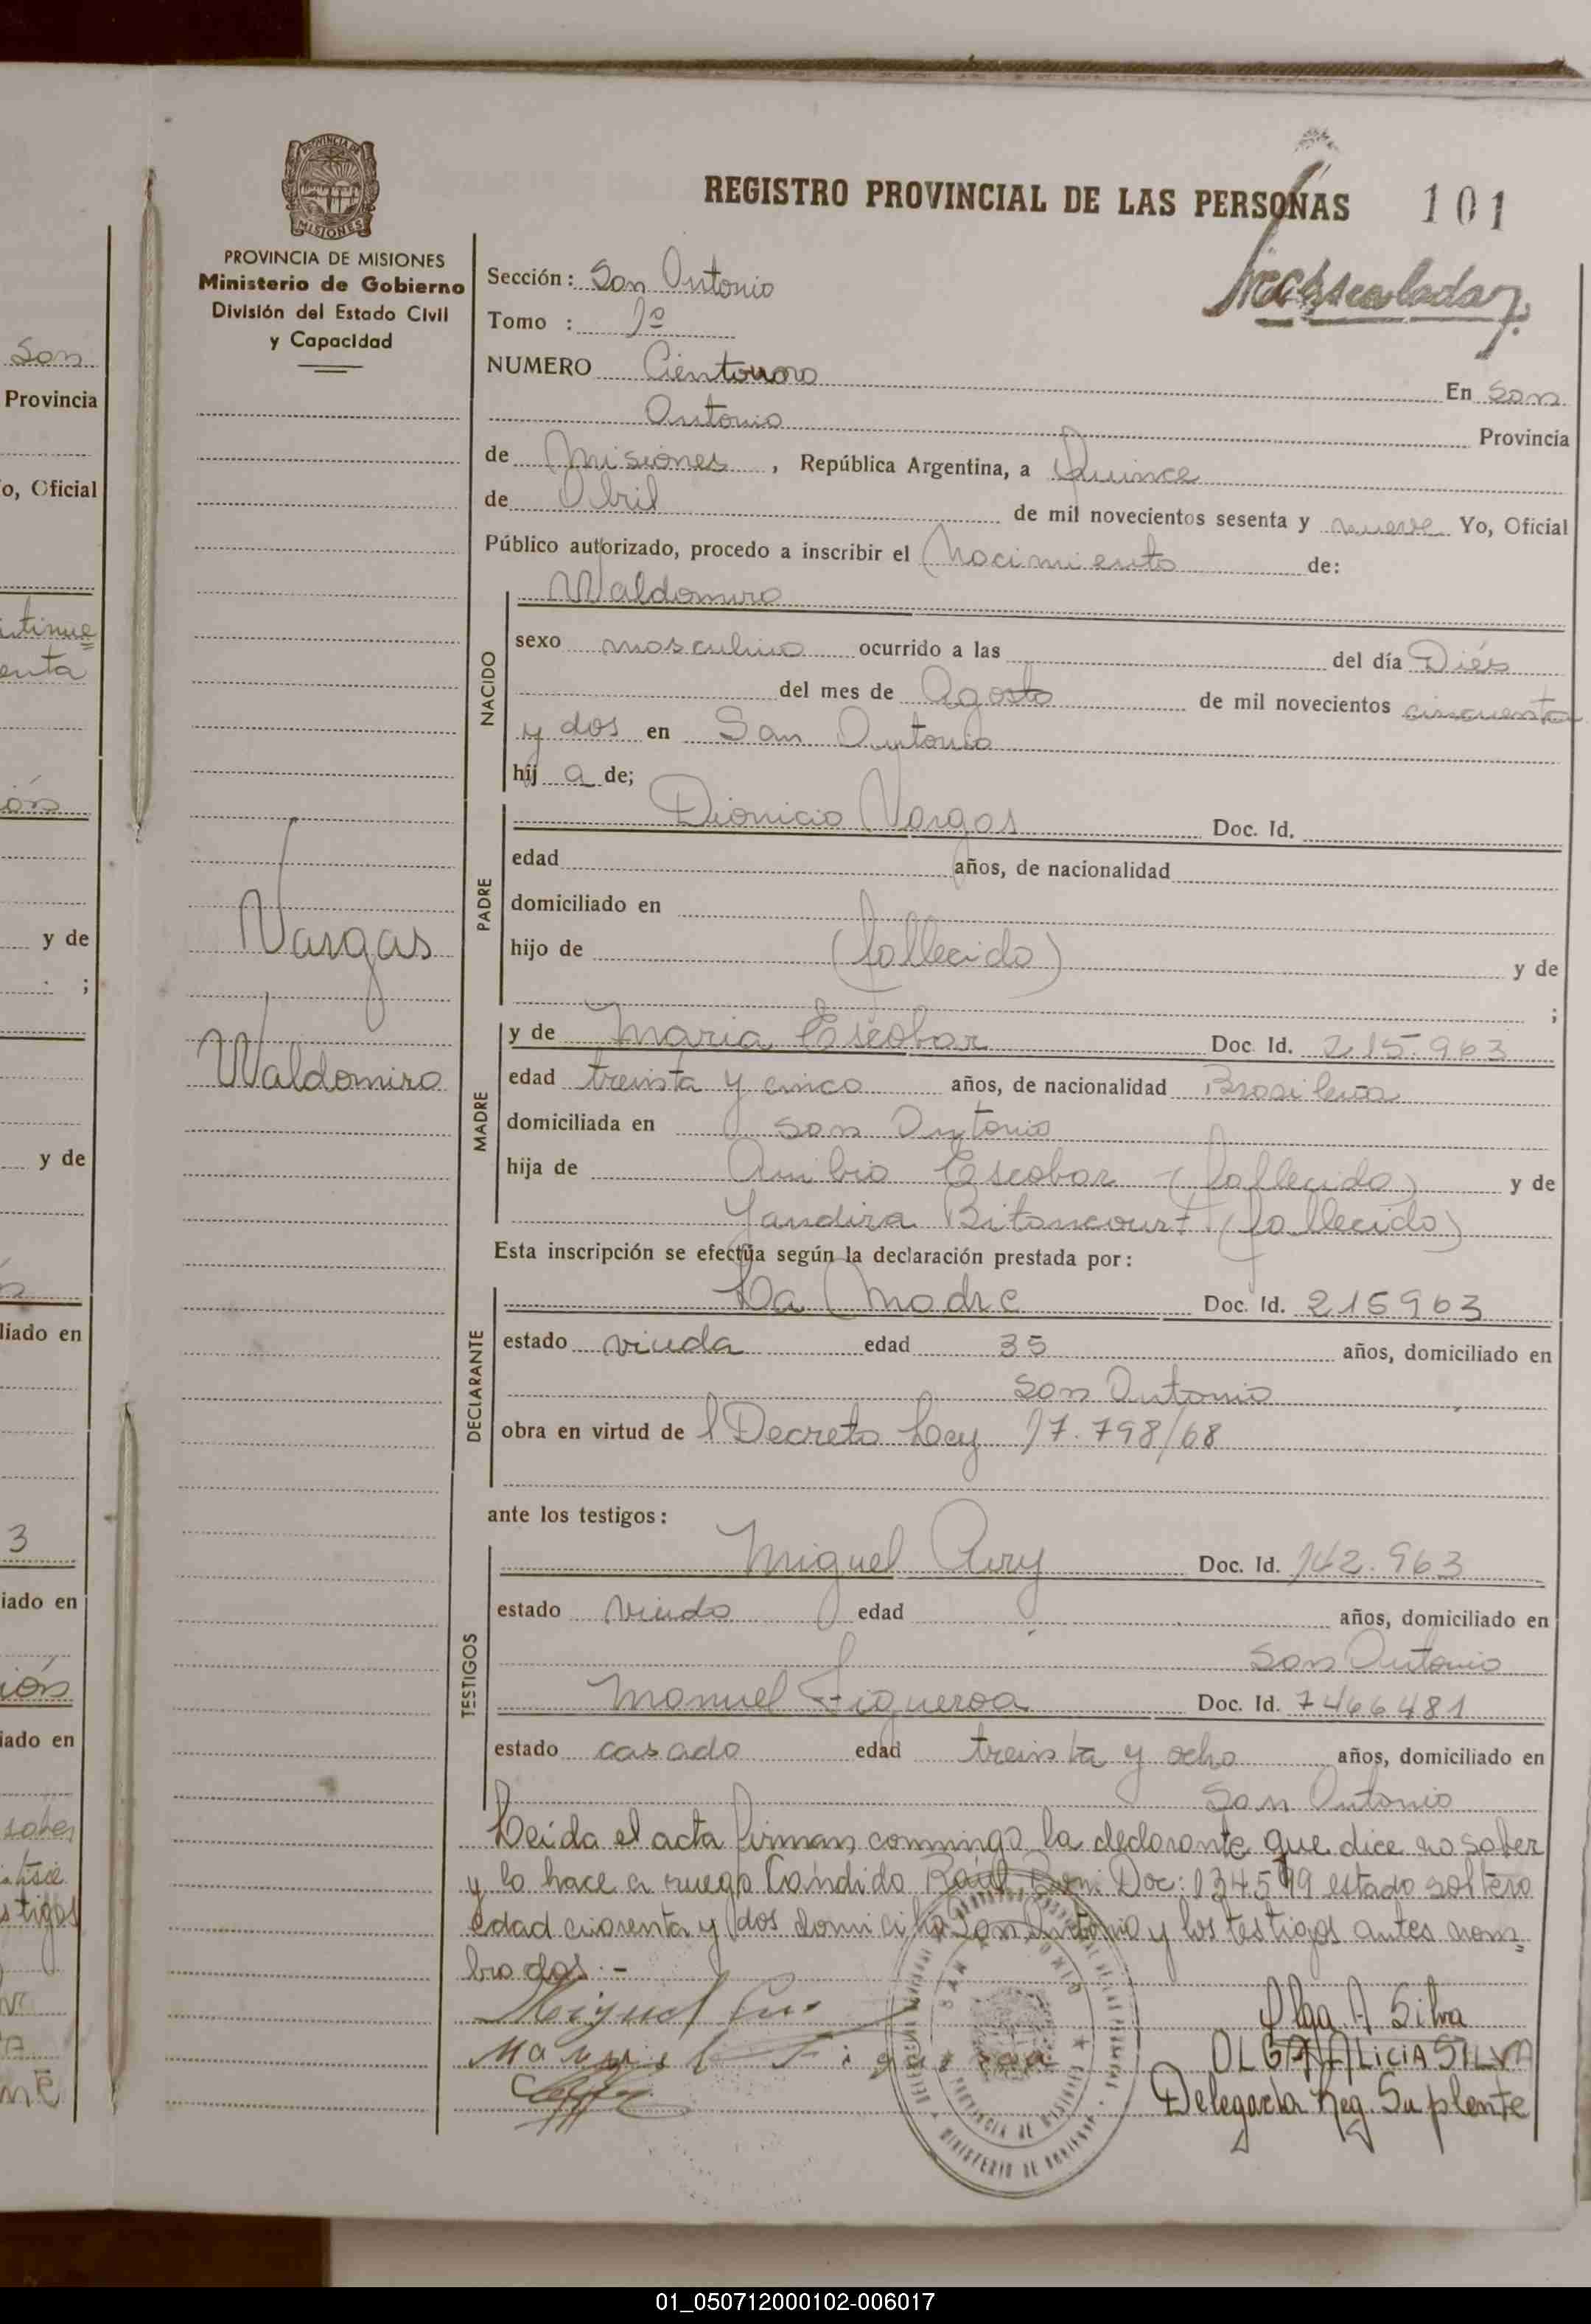 PROVINCIA DE
MISIONES
PROVINCIA DE MISIONES
Ministerio de Gobierno
División del Estado Civil
y Capacidad
Vargas
Waldomiro
REGISTRO PROVINCIAL DE LAS PERSONAS 101
Sección: San Antonio
Tomo : 1º
NUMERO Cientouno En San
Antonio Provincia
de Misiones, República Argentina, a Quince
de Abril de mil novecientos sesenta y nueve Yo, Oficial
Público autorizado, procedo a inscribir el Nacimiento de:
Waldomiro
NACIDO
sexo masculino ocurrido a las del día Diés
del mes de Agosto de mil novecientos cincuenta
y dos en San Antonio
hij a de;
PADRE
Dionicio Vargas Doc. Id.
edad años, de nacionalidad
domiciliado en
hijo de (fallecido) y de
;
MADRE
y de Maria Escobar Doc. Id. 215.963
edad treinta y cinco años, de nacionalidad Brasileña
domiciliada en San Antonio
hija de Escobar (fallecido) y de
Jandira Bitancourt (fallecido)
Esta inscripción se efectúa según la declaración prestada por:
DECLARANTE
La Madre Doc. Id. 215963
estado viuda edad 35 años, domiciliado en
San Antonio
obra en virtud de l Decreto Ley 17.798/68
ante los testigos:
TESTIGOS
Miguel Doc. Id. 142.963
estado viudo edad años, domiciliado en
San Antonio
Manuel Figueroa Doc. Id. 7466481
estado casado edad treinta y ocho años, domiciliado en
San Antonio
Leida el acta firman conmingo la declarante que dice no saber
y lo hace a ruego Cándido Raúl Doc: estado soltero
edad cuarenta y dos domicilio San Antonio y los testigos antes nom=
brados.-
Miguel
Manuel Figueroa
Olga A Silva
OLGA ALICIA SILVA
Delegada Reg. Suplente
San
Provincia
o, Oficial
enta
y de
;
y de
liado en
3
iado en
ión
iado en
saber
01_050712000102-006017